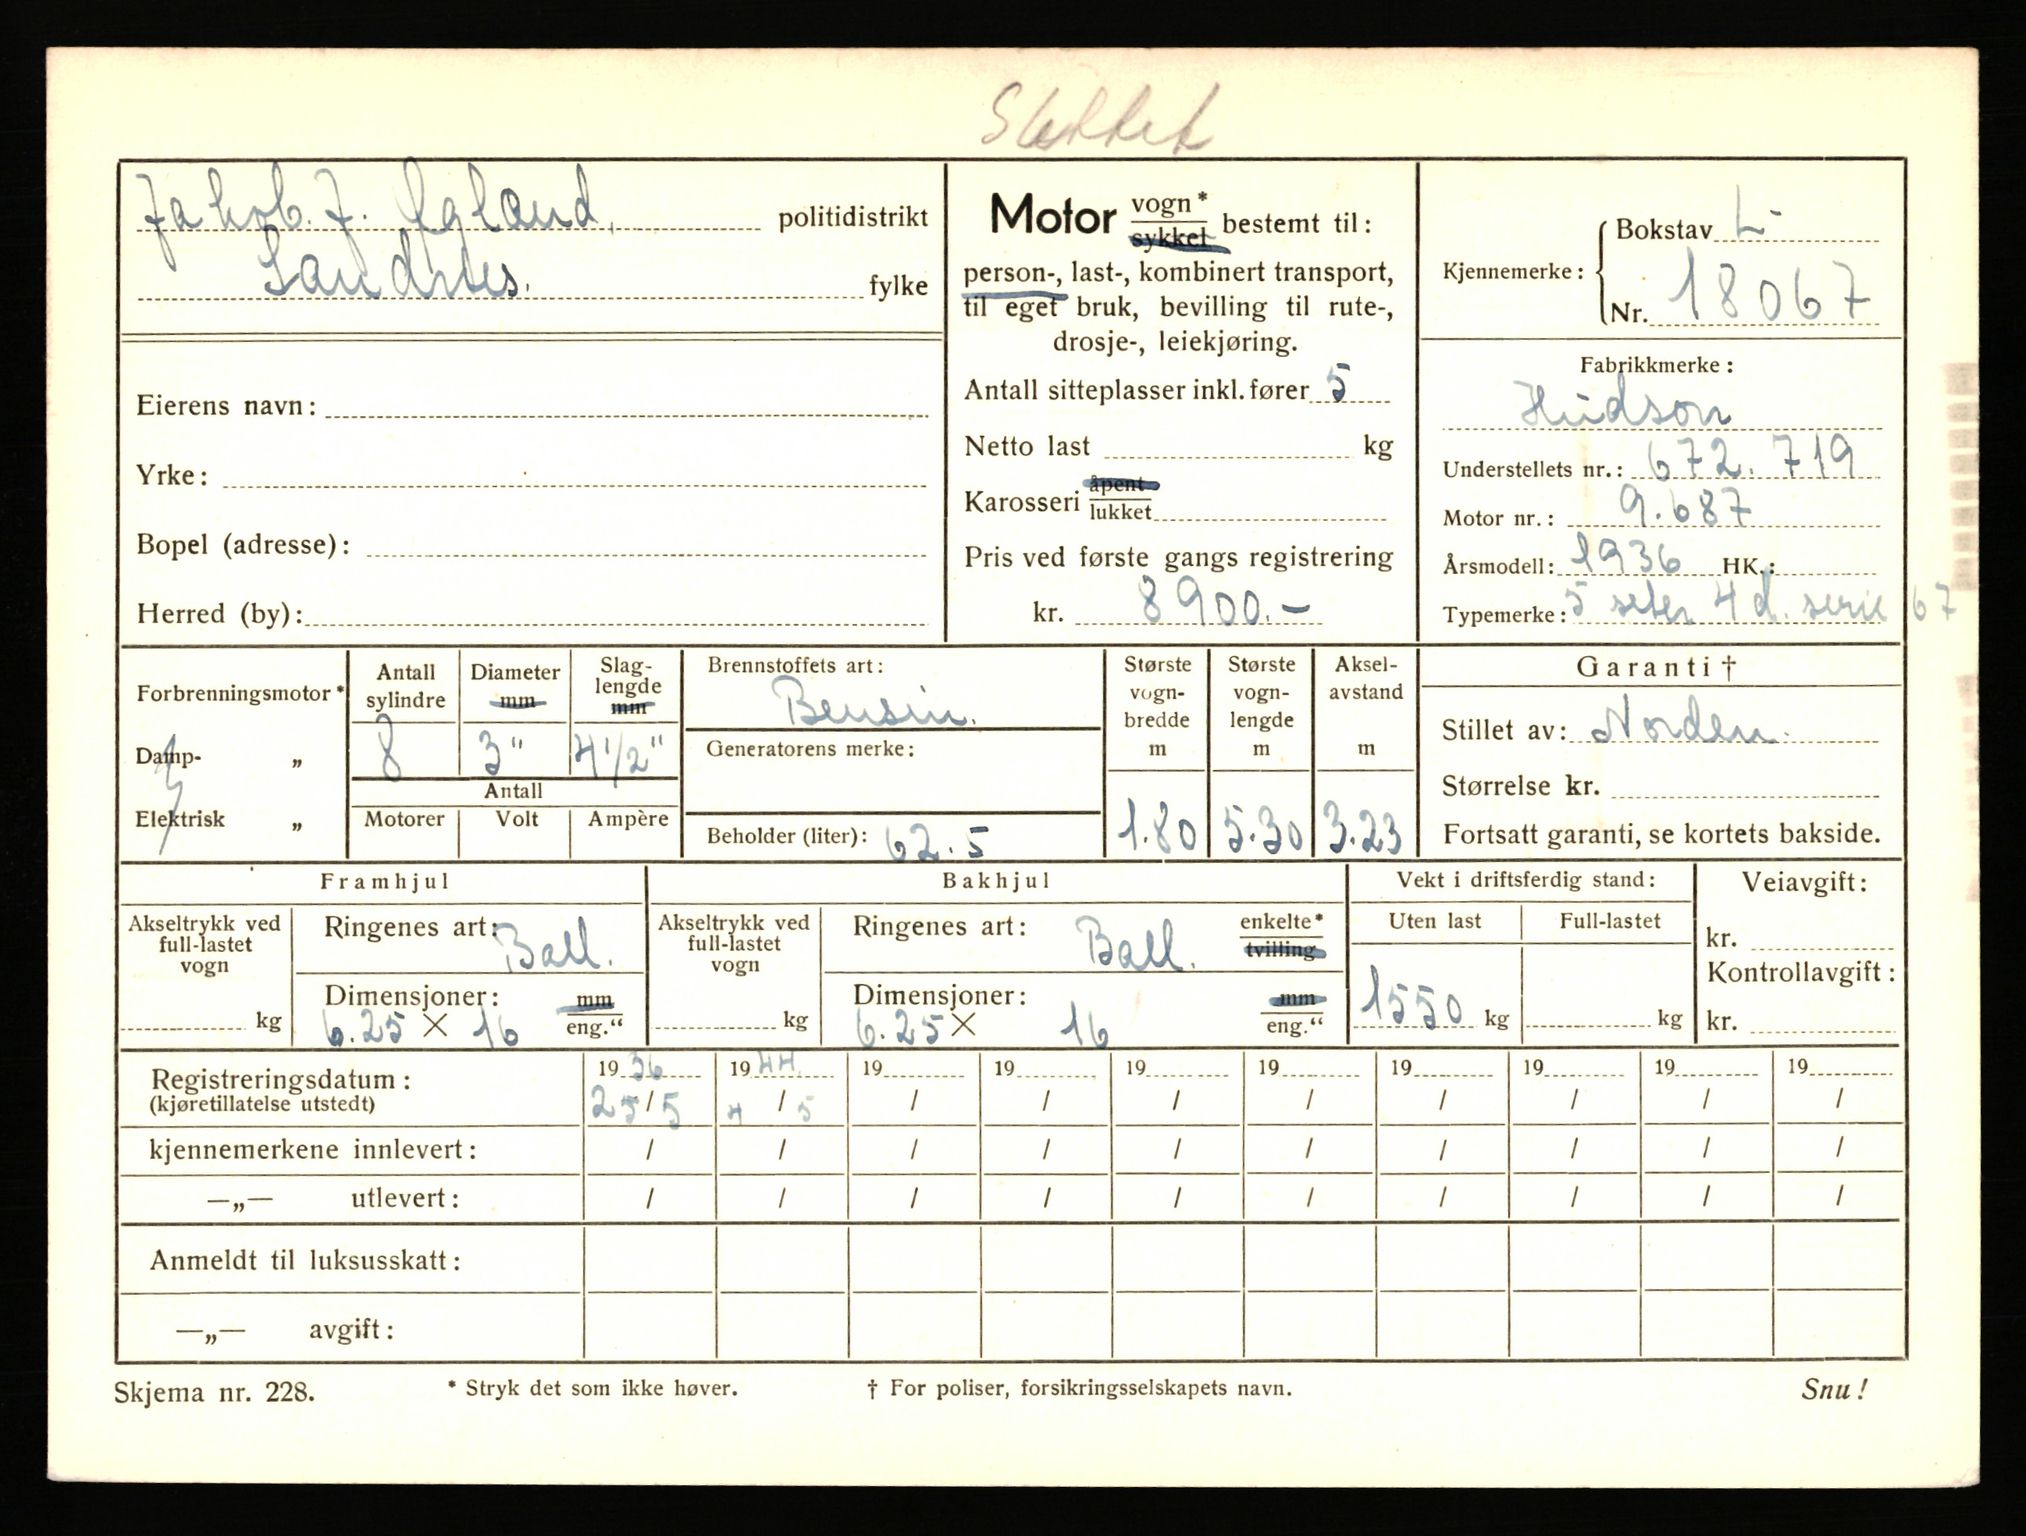 Slettet
Jakob. J. Igland, politidistrikt
Sandnes. fylke
Eierens navn:
Yrke:
Bopel (adresse):
Herred (by):
Motor vogn* sykkel bestemt til:
person-, last-, kombinert transport,
til eget bruk, bevilling til rute-,
drosje-, leiekjøring.
Antall sitteplasser inkl. fører 5
Netto last kg
Karosseri åpent lukket
Pris ved første gangs registrering
kr. 8900.-
Kjennemerke: Bokstav L-
Nr. 18067
Fabrikkmerke:
Hudson
Understellets nr.: 672.719
Motor nr.: 9.687
Årsmodell: 1936 HK.:
Typemerke: 5 seter 4 d. serie 67
Forbrenningsmotor*
Damp- „
Elektrisk „
Antall sylindre Diameter mm Slag- lengde mm
8 3" 4 1/2"
Antall
Motorer Volt Ampère
Brennstoffets art:
Bensin.
Generatorens merke:
Beholder (liter): 62.5
Største vogn- bredde m
1.80
Største vogn- lengde m
5.30
Aksel- avstand m
3.23
Garanti †
Stillet av: Norden.
Størrelse kr.
Fortsatt garanti, se kortets bakside.
Framhjul
Akseltrykk ved full-lastet vogn
kg
Ringenes art: Ball.
Dimensjoner: mm
6.25 × 16 eng.“
Bakhjul
Akseltrykk ved full-lastet vogn
kg
Ringenes art: Ball. enkelte* tvilling
Dimensjoner: mm
6.25 × 16 eng.“
Vekt i driftsferdig stand:
Uten last Full-lastet
1550 kg kg
Veiavgift:
kr.
Kontrollavgift:
kr.
Registreringsdatum: 1936 1944 19 19 19 19 19 19 19 19
(kjøretillatelse utstedt) 25/5 4/5 / / / / / / / /
kjennemerkene innlevert: / / / / / / / / / /
—„— utlevert: / / / / / / / / / /
Anmeldt til luksusskatt:
—„— avgift:
Skjema nr. 228. * Stryk det som ikke høver. † For poliser, forsikringsselskapets navn. Snu!